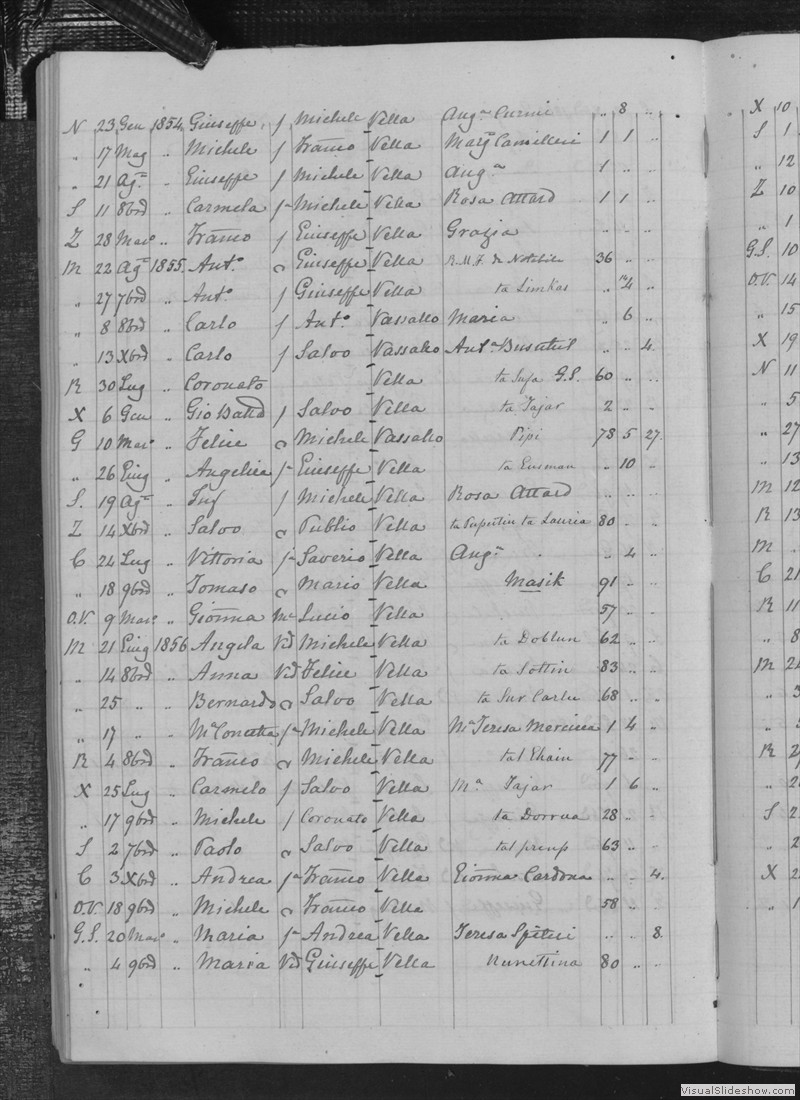 N 23 Gen 1854 Giuseppe f Michele Vella Aug.ª Curmi .. 8 ..
.. 17 Mag .. Michele f Franco Vella Marg.ª Camilleri 1 1 ..
.. 21 Ag.º .. Giuseppe f Michele Vella Aug.ª 1 .. ..
S 11 8brd .. Carmela fª Michele Vella Rosa Attard 1 1 ..
Z 28 Mar.º .. Franco f Giuseppe Vella Grazia .. .. ..
M 22 Ag.º 1855 Ant.º c Giuseppe Vella 36 .. ..
.. 27 7brd .. Ant.º f Giuseppe Vella ta Limkas ..
.. 8 8brd .. Carlo f Ant.º Vassallo Maria .. 6 ..
.. 13 Xbrd .. Carlo f Salvo Vassallo Ant.ª Busuttil .. .. 4
R 30 Lug .. Coronato Vella ta G.S. 60 .. ..
X 6 Gen .. Gio Batta f Salvo Vella ta Tajar 2 .. ..
G 10 Mar.º .. Felice c Michele Vassallo Pipi 78 5 27
.. 26 Giug .. Angelica fª Giuseppe Vella ta .. 10 ..
S. 19 Ag.º .. Inf f Michele Vella Rosa Attard .. .. ..
Z 14 Xbrd .. Salvo c Publio Vella ta ta Lauria 80 .. ..
C 24 Lug .. Vittoria fª Saverio Vella Aug.ª .. 4 ..
.. 18 9brd .. Tomaso c Mario Vella Masik 91 .. ..
O.V. 9 Mar.º .. Gioanna Mᵉ Lucio Vella 57 .. ..
M 21 Giug 1856 Angela Vd Michele Vella ta Doblun 62 .. ..
.. 14 8brd .. Anna Vd Felice Vella ta Sottin 83 .. ..
.. 25 .. .. Bernardo c Salvo Vella ta Sur Carlu 68 .. ..
.. 17 .. .. Mª Concetta fª Michele Vella Mª Teresa Mercieca 1 4 ..
R 4 8brd .. Franco c Michele Vella tal Ghain 77 .. ..
X 25 Lug .. Carmelo f Salvo Vella Mª Tajar 1 6 ..
.. 17 9brd .. Michele f Coronato Vella ta Dorrua 28 .. ..
S 2 7brd .. Paolo c Salvo Vella 63 .. ..
C 3 Xbrd .. Andrea fª Franco Vella Gioanna Cardona .. .. 4
O.V. 18 9brd .. Michele c Franco Vella 58 .. ..
G.S. 20 Mar.º .. Maria fª Andrea Vella Teresa Spiteri .. .. 8
.. 4 9brd .. Maria Vd Giuseppe Vella Nunettina 80 .. ..
X 10
S 1
.. 12
Z 10
.. 1
G.S. 10
O.V. 14
.. 15
X 19
N 11
.. 5
.. 27
.. 13
M 12
R 13
M
C 21
R 11
.. 8
VisualSlideshow.com